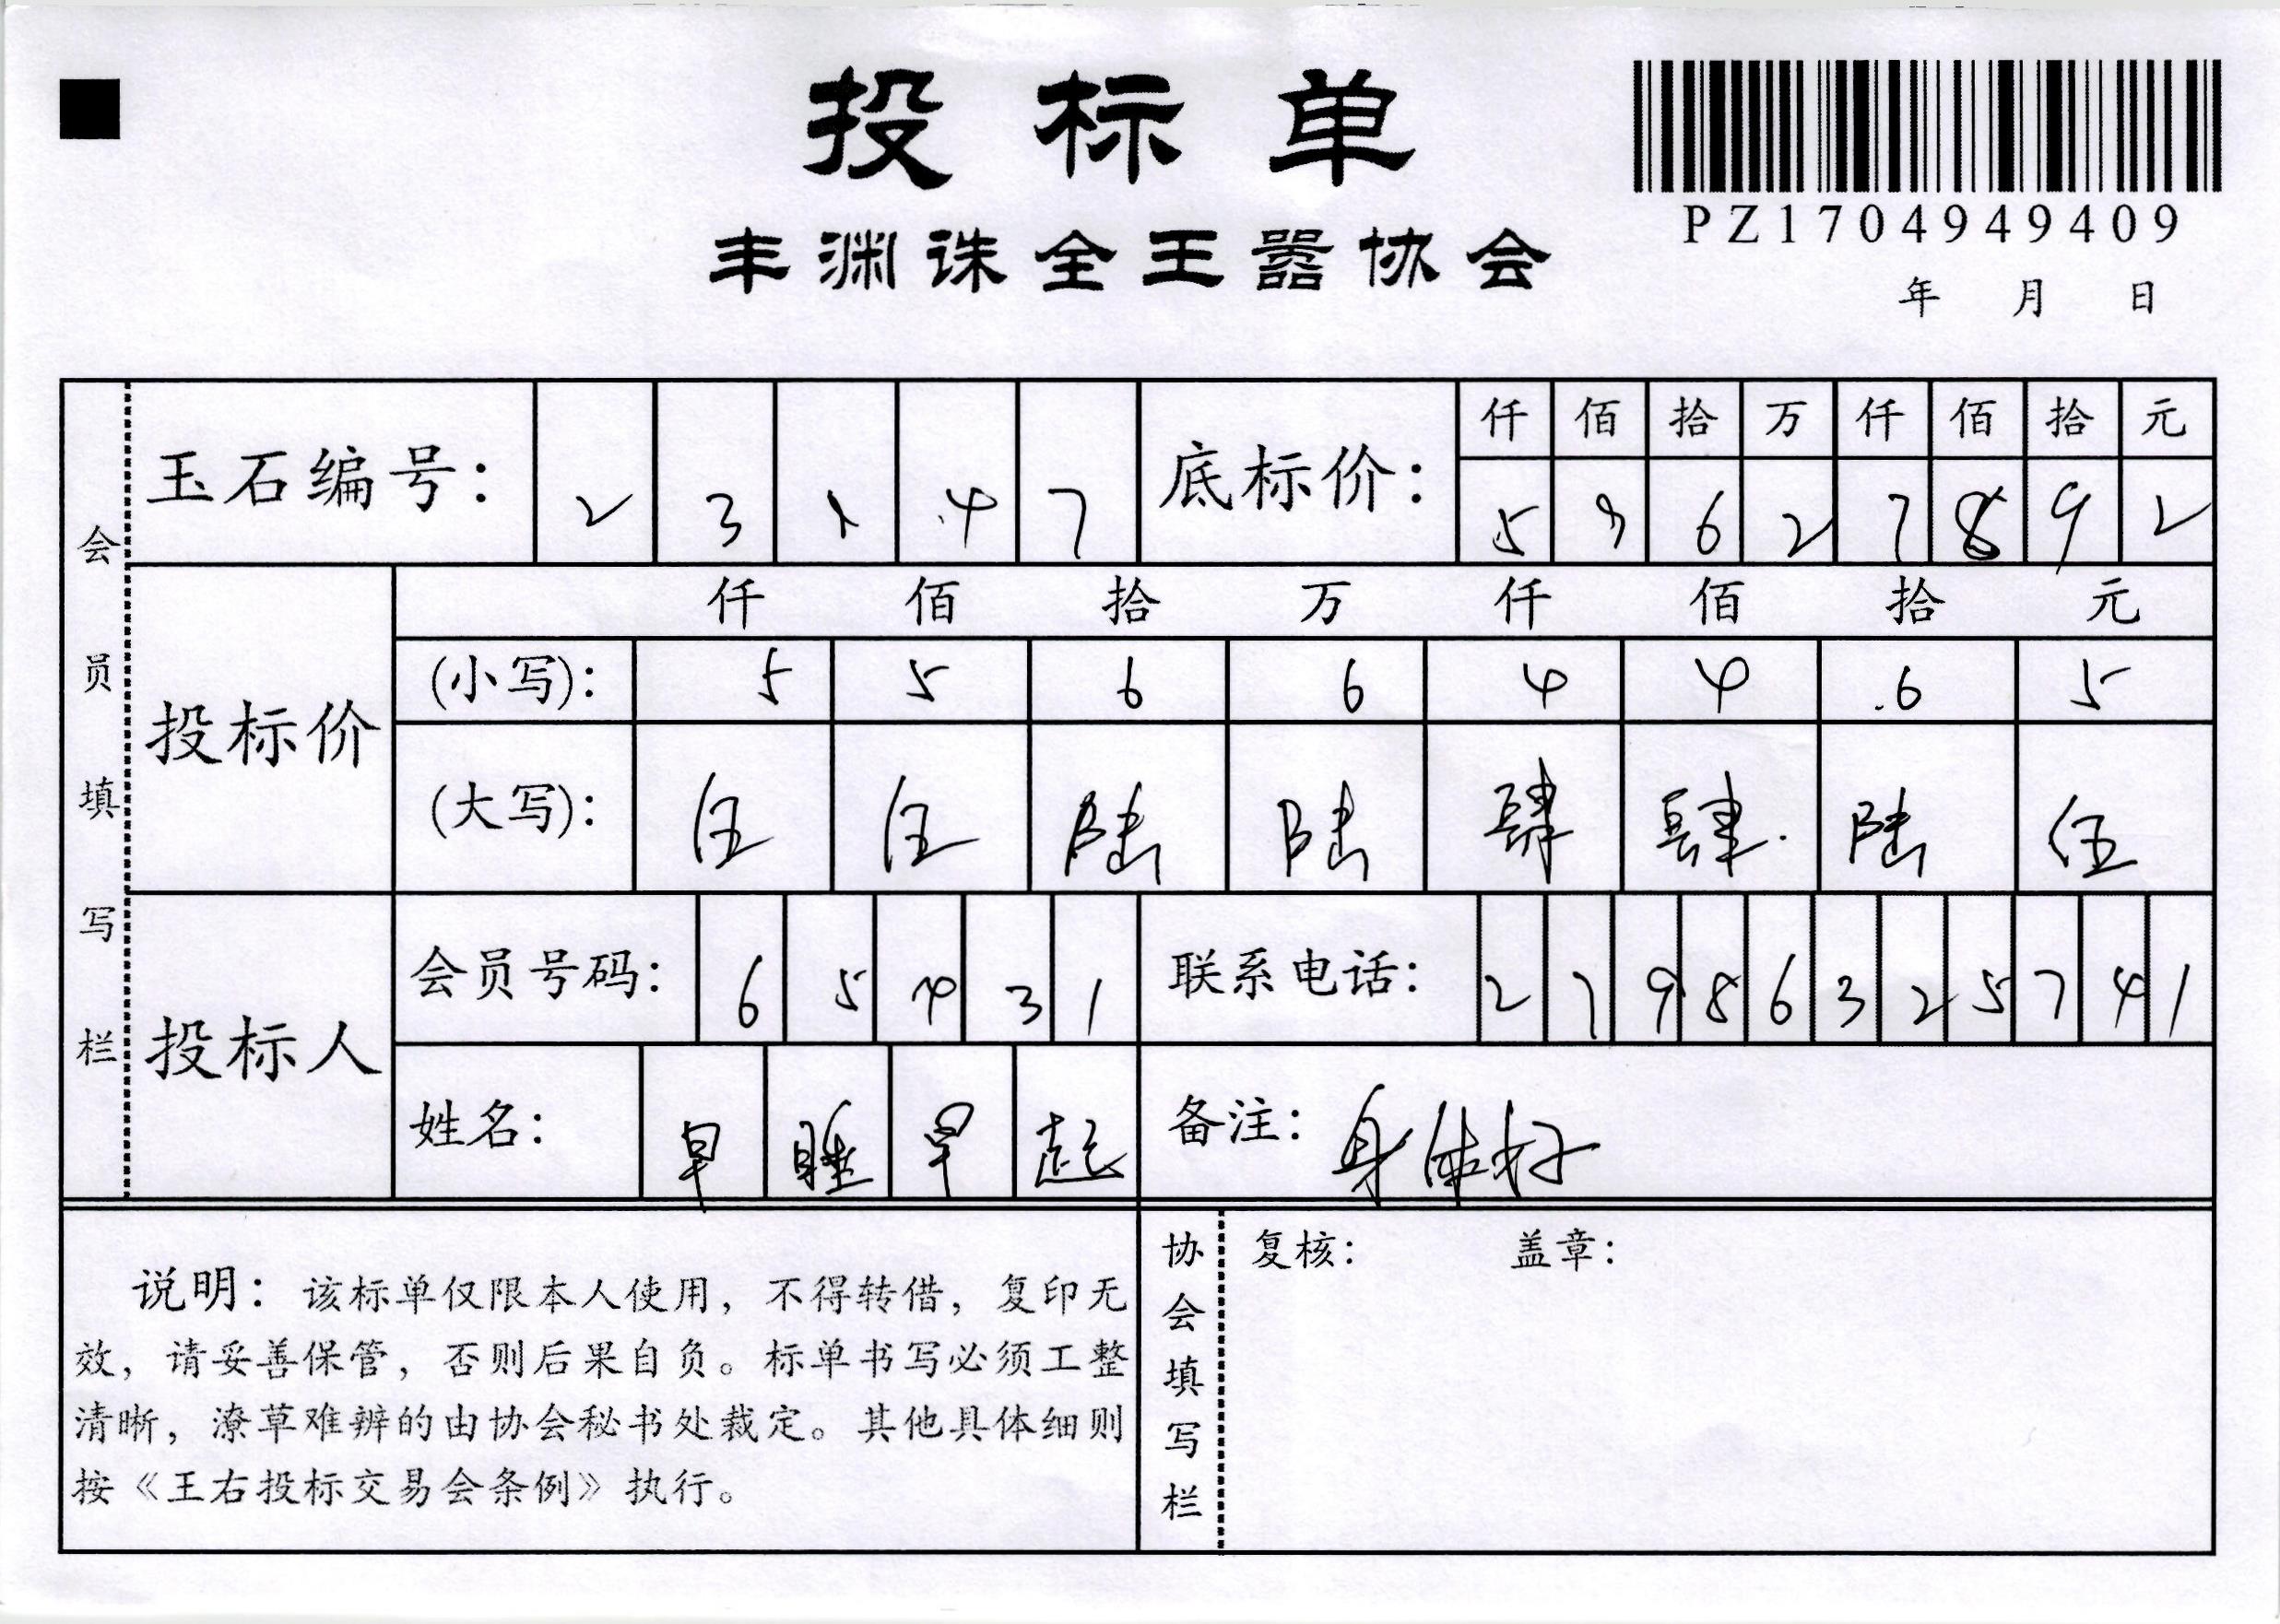 投标单
丰渊诛全王嚣协会
PZ1704949409
年 月 日
会员填写栏
玉石编号： 2 3 1 4 7
底标价： 仟 佰 拾 万 仟 佰 拾 元
5 9 6 2 7 8 9 2
投标价
仟 佰 拾 万 仟 佰 拾 元
(小写)： 5 5 6 6 4 4 6 5
(大写)： 伍 伍 陆 陆 肆 肆 陆 伍
投标人
会员号码： 6 5 4 3 1
联系电话： 2 7 9 8 6 3 2 5 7 4 1
姓名： 早 睡 早 起
备注： 身体好
说明：该标单仅限本人使用，不得转借，复印无
效，请妥善保管，否则后果自负。标单书写必须工整
清晰，潦草难辨的由协会秘书处裁定。其他具体细则
按《王右投标交易会条例》执行。
协会填写栏
复核： 盖章：